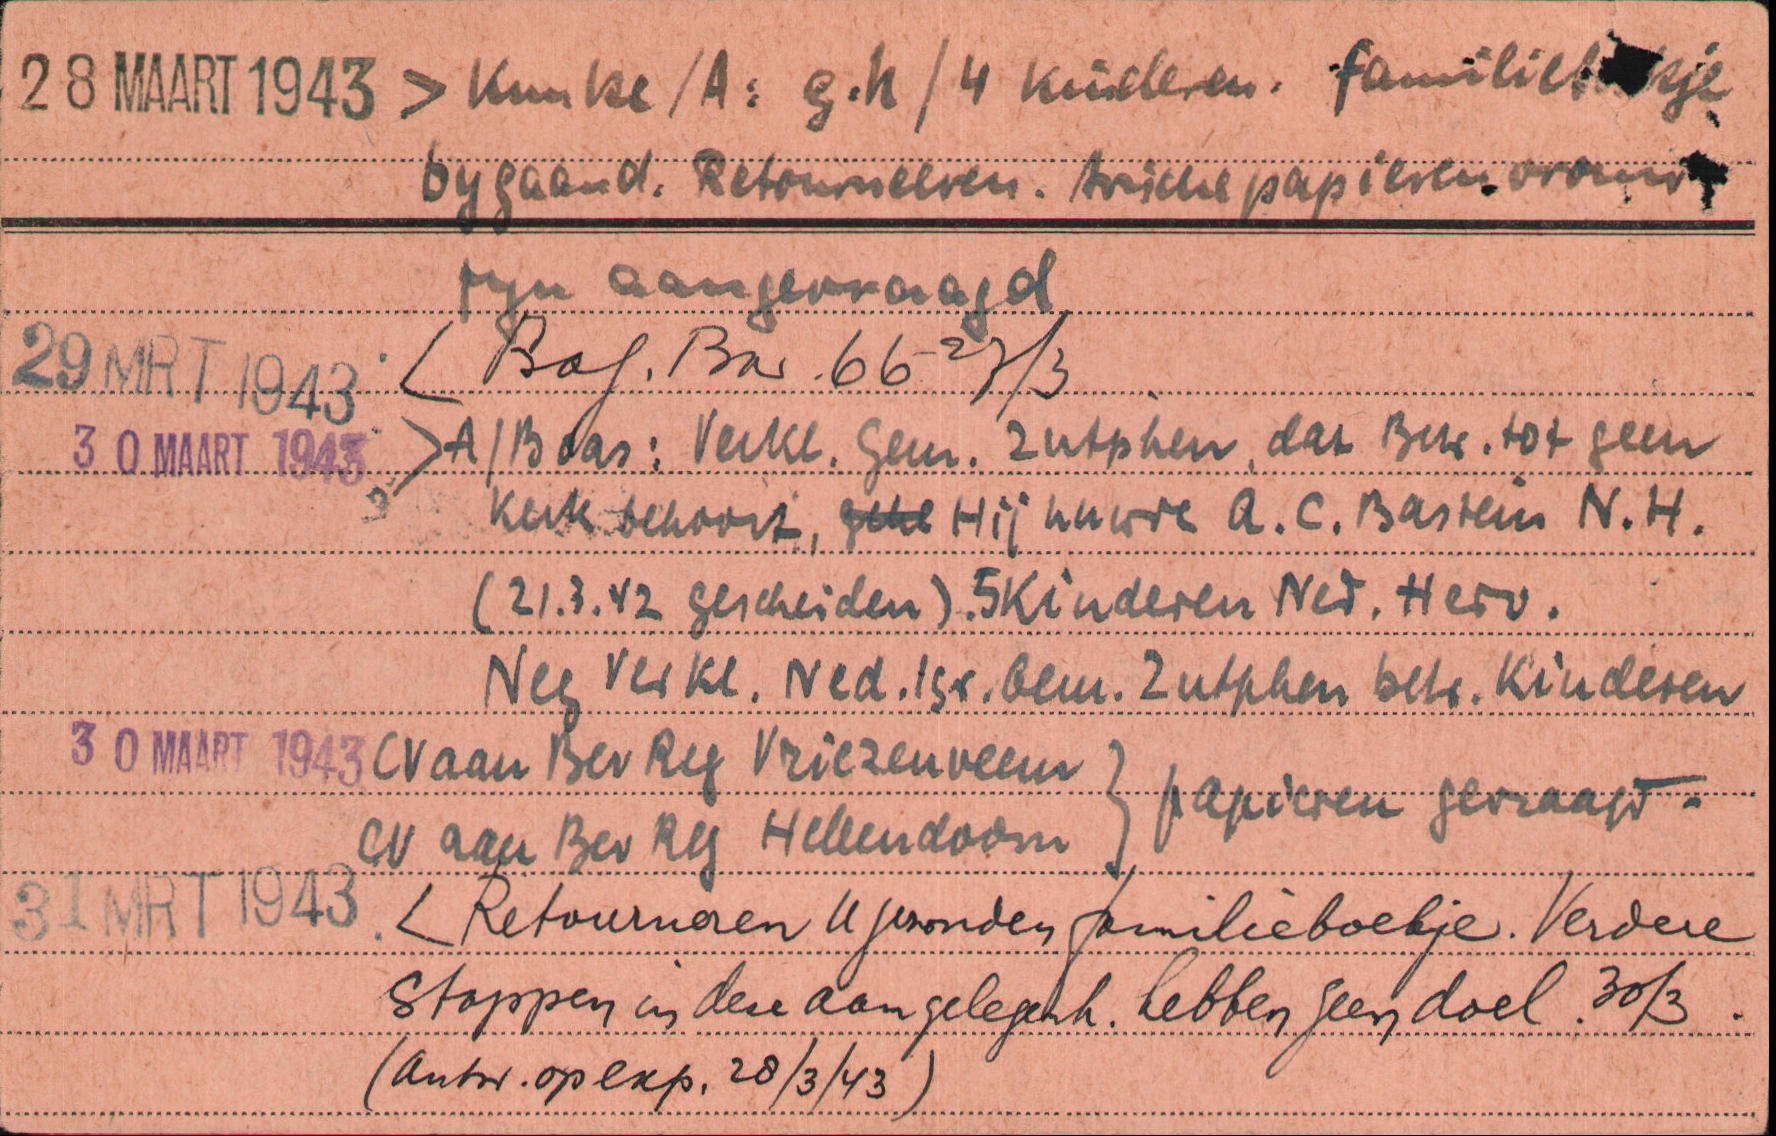 28 MAART 1943 > Kunke / A: g.h / 4 Kinderen. familieb kje
bygaand. Retourneeren. Arische papieren vrouw
zyn aangevraagd
29 MRT 1943 < Bag. Bar. 66-27/3
30 MAART 1943 > A/Boas: Verkl. Gem. Zutphen, dat Betr. tot geen
Kerk behoort, Hij huwde A. C. Bastein N.H.
(21.3.42 gescheiden). 5 Kinderen Ned. Herv.
Neg Verkl. Ned. Isr. Gem. Zutphen betr. Kinderen
30 MAART 1943 CV aan Bev Reg Vriezenveen } papieren gevraagd -
CV aan Bev Reg Hellendoorn
31 MRT 1943. < Retourneren U gezonden familieboekje. Verdere
Stappen in deze aangelegenh. hebben geen doel. 30/3.
(Antw. op exp. 28/3/43)